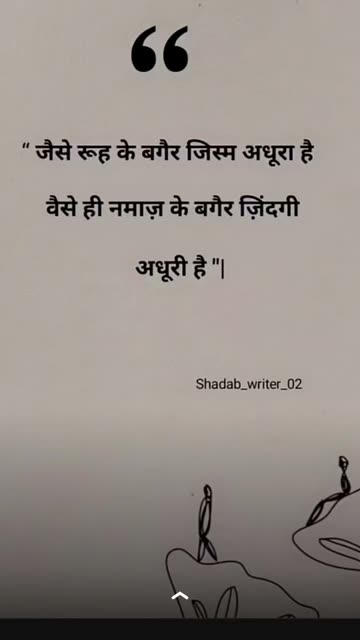 “ जैसे रूह के बगैर जिस्म अधूरा है
वैसे ही नमाज़ के बगैर ज़िंदगी
अधूरी है "|
Shadab_writer_02